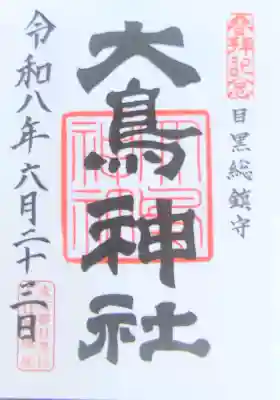 参拝記念
目黒総鎮守
大鳥神社
令和八年六月二十三日